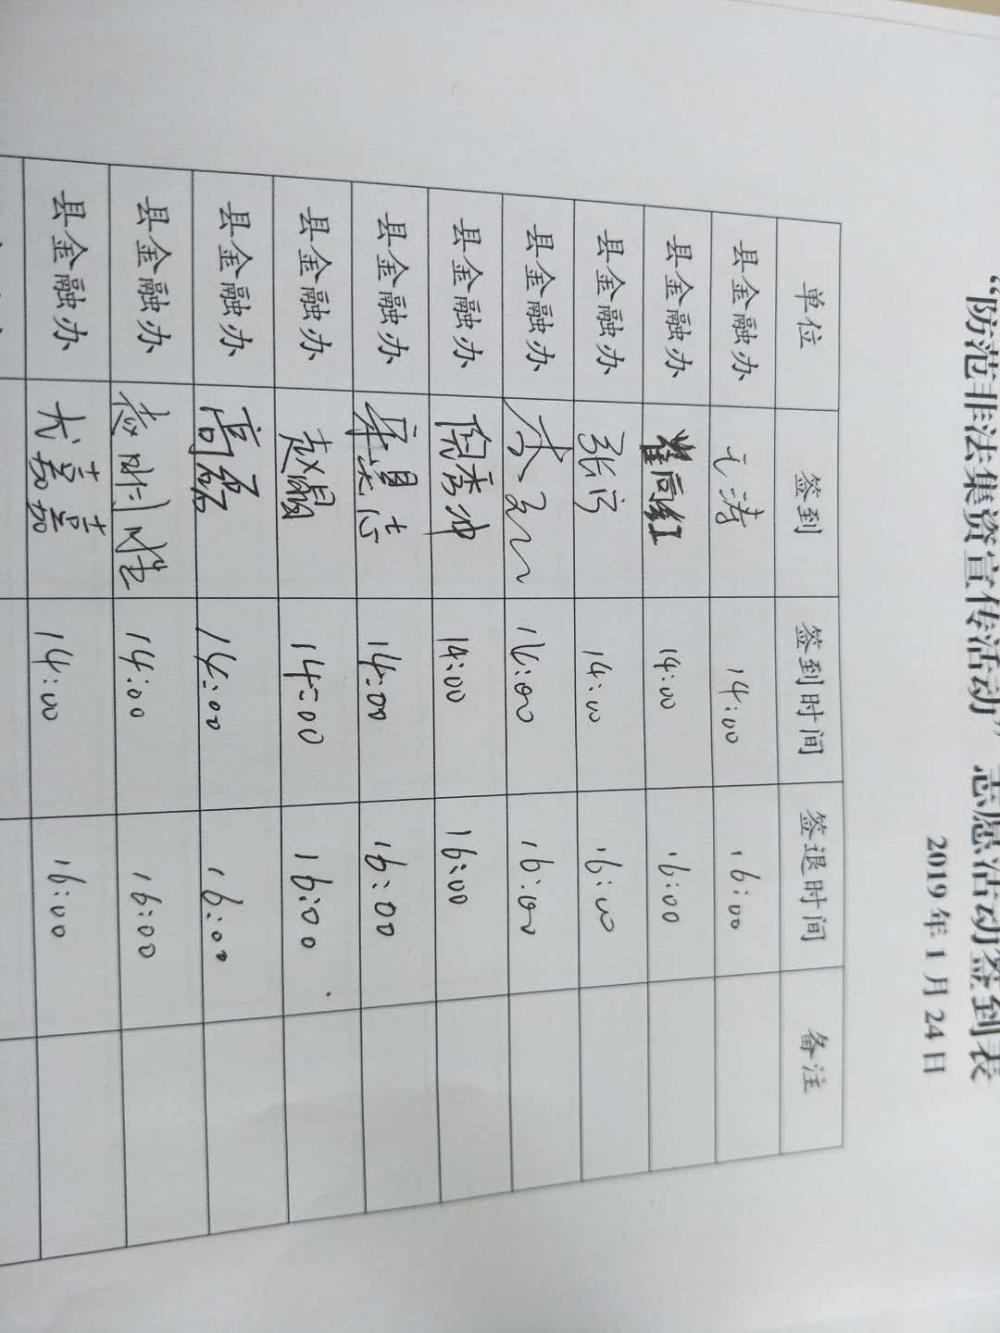 “防范非法集资宣传活动”志愿活动签到表
2019年1月24日
单位 签到 签到时间 签退时间 备注
县金融办 元涛 14:00 16:00
县金融办 崔同红 14:00 16:00
县金融办 张 14:00 16:00
县金融办 14:00 16:00
县金融办 倪秀冲 14:00 16:00
县金融办 14:00 16:00
县金融办 赵晶 14:00 16:00
县金融办 高磊 14:00 16:00
县金融办 14:00 16:00
县金融办 尤嘉嘉 14:00 16:00